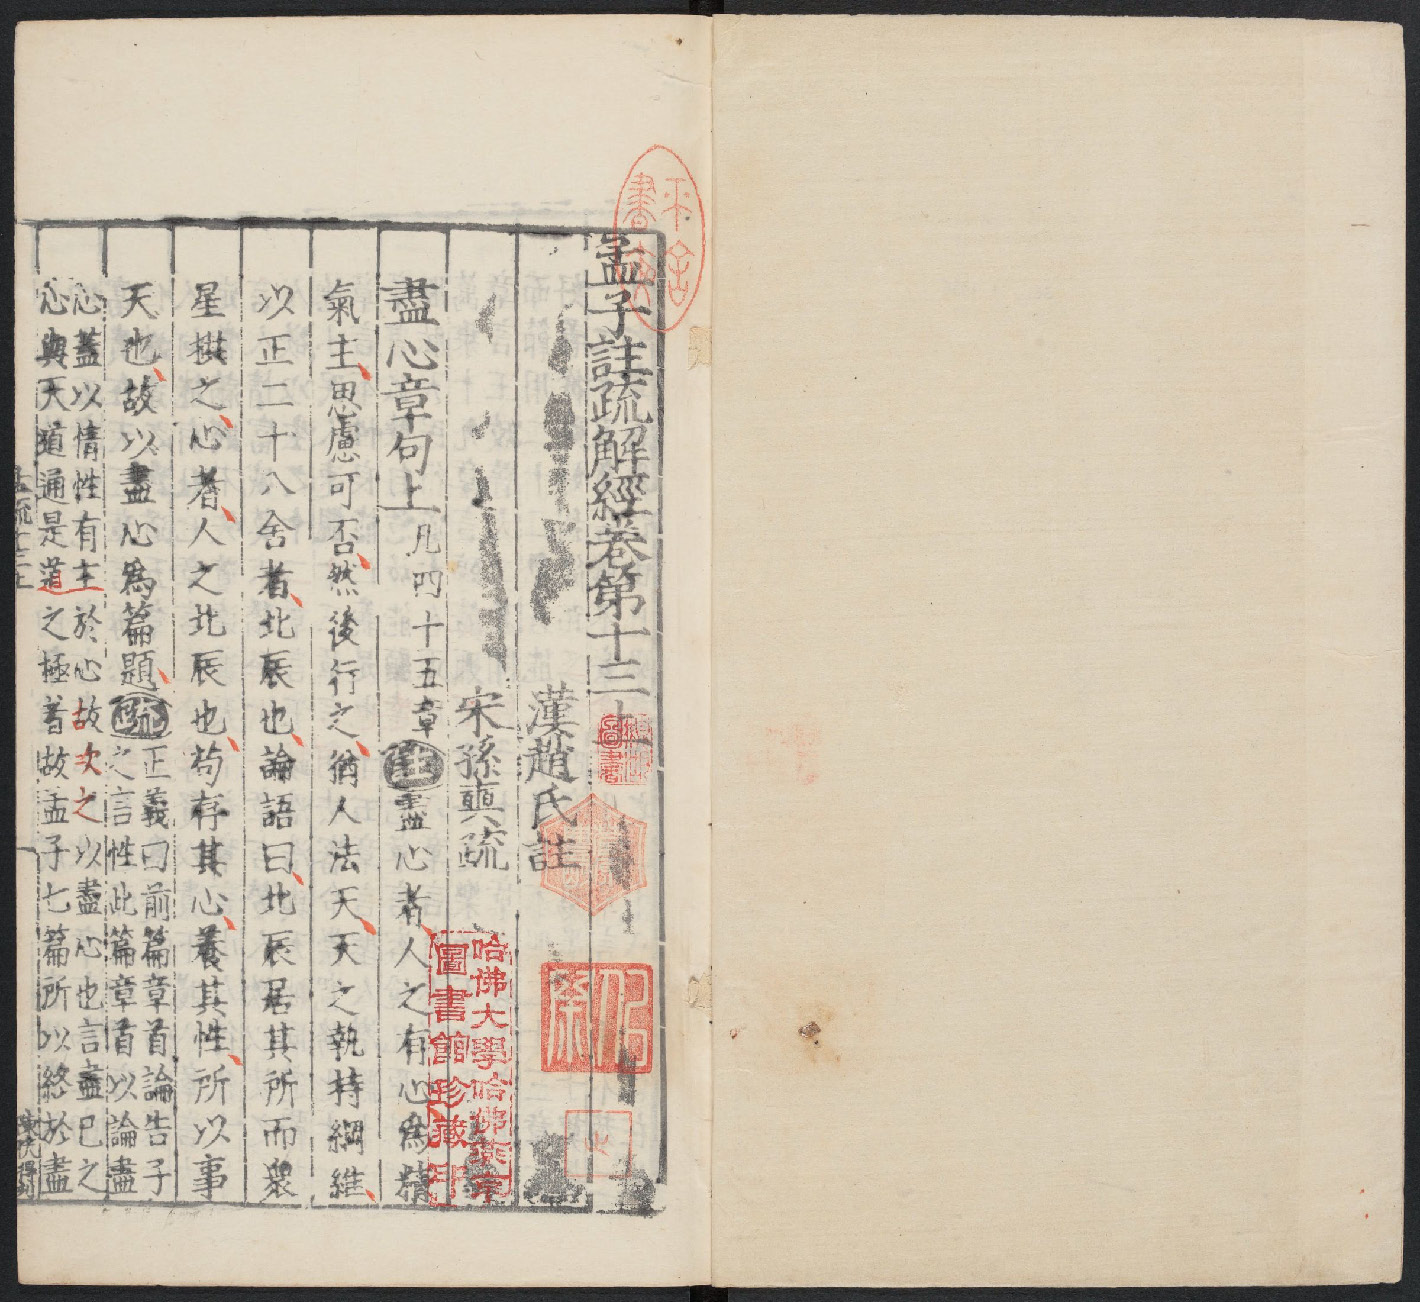 孟子註疏解經卷第十三上
漢趙氏註
宋孫奭疏
盡心章句上 凡四十五章 註 盡心者人之有心爲精
氣主思慮可否然後行之猶人法天天之執持綱維
以正二十八舍者北辰也論語曰北辰居其所而衆
星拱之心者人之北辰也苟存其心養其性所以事
天也故以盡心爲篇題 疏 正義曰前篇章首論告子
之言性此篇章首以論盡
心蓋以情性有主於心故次之以盡心也言盡己之
心與天道通是道之極者故孟子七篇所以終於盡
哈佛大學哈佛燕京
圖書館珍藏印